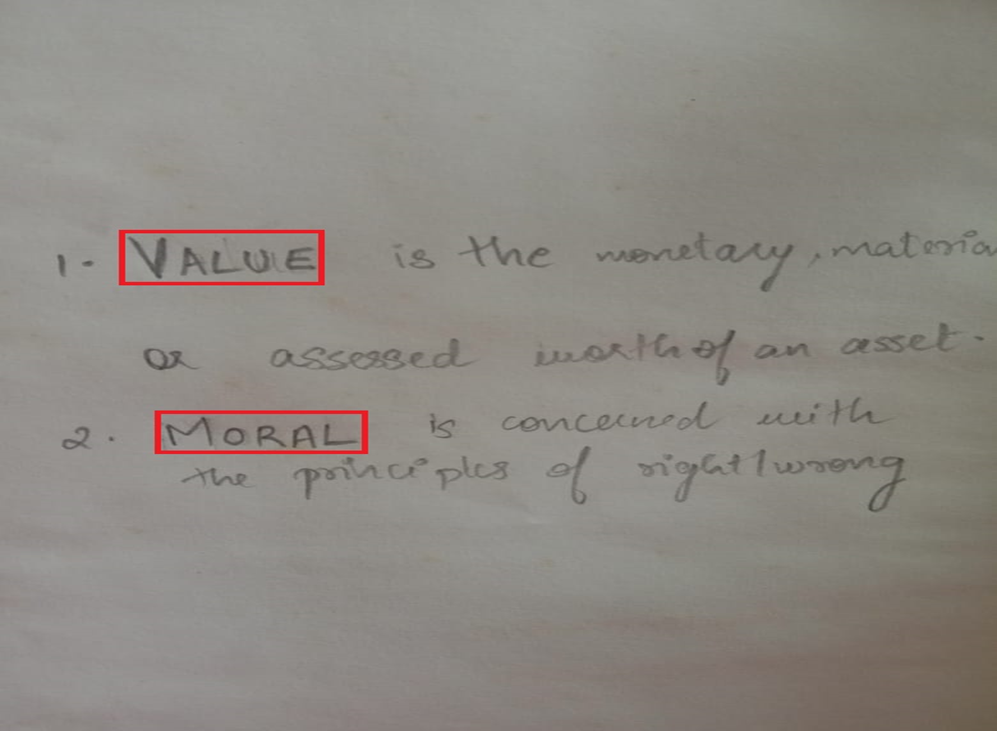 1. VALUE is the monetary, materia
or assessed worth of an asset.
2. MORAL is concerned with
the principles of right/wrong